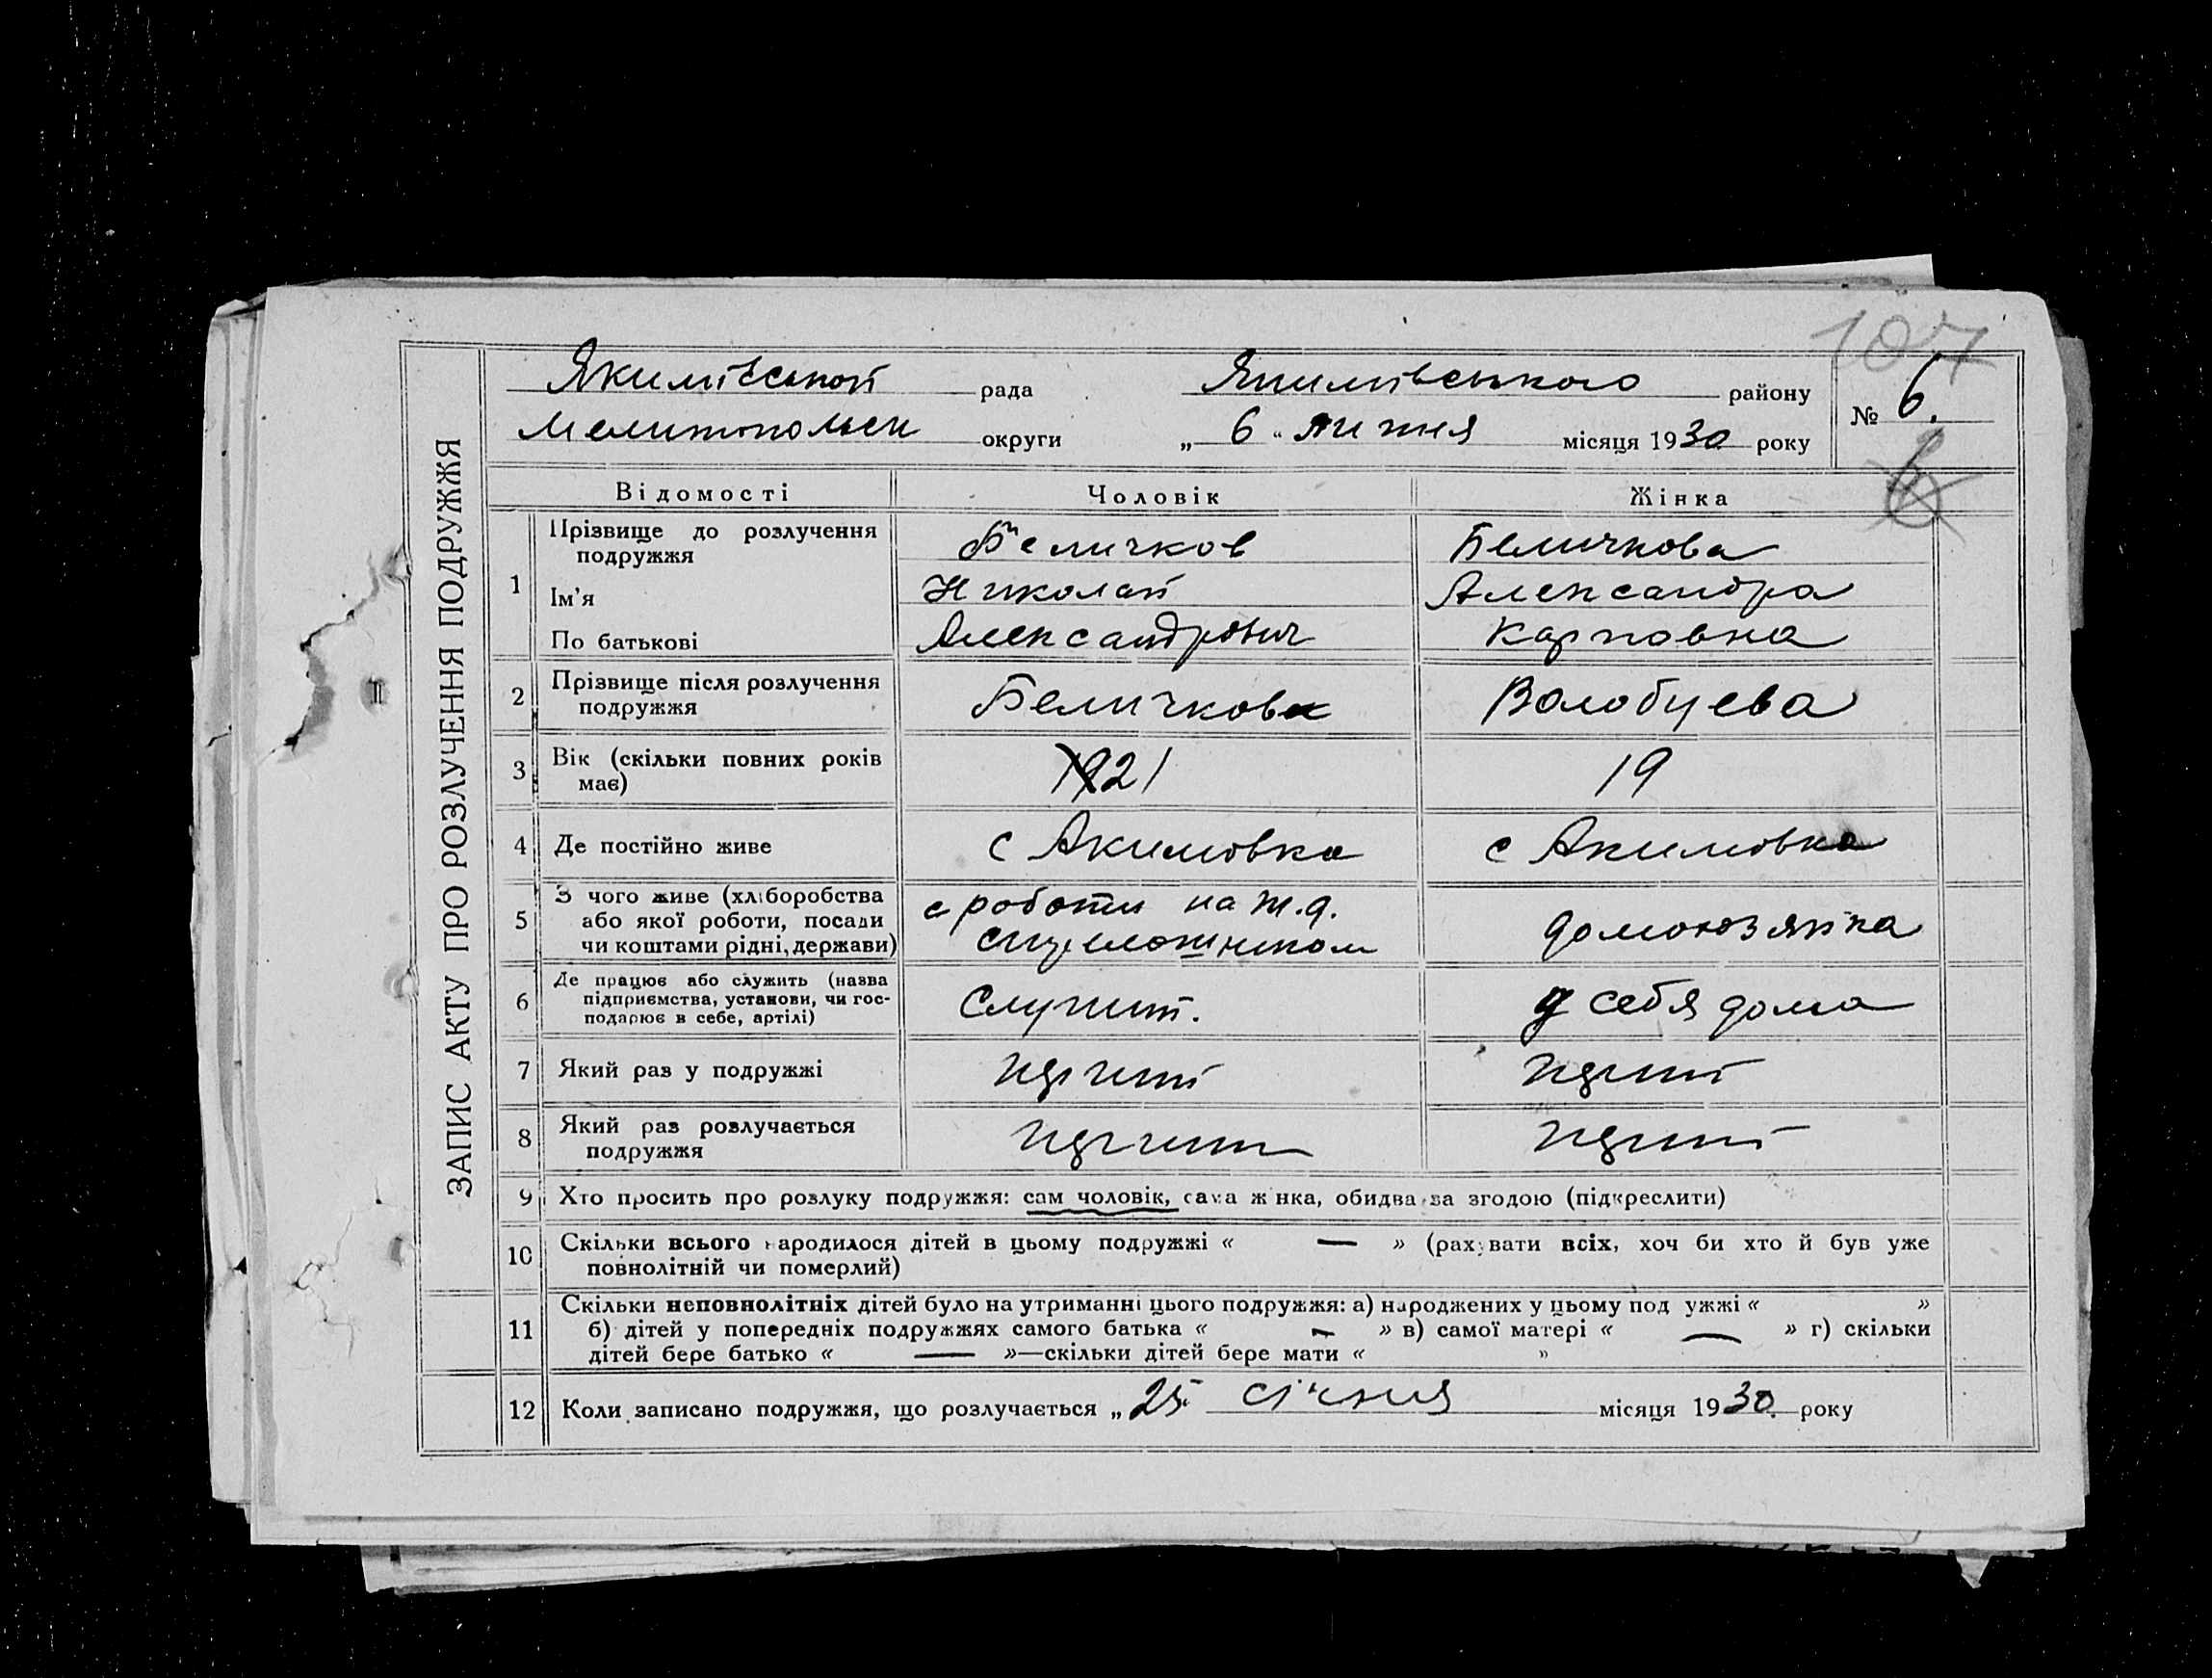 107
Якимівської рада Якимівського району № 6.
Мелитопольск округи „ 6 “ липня місяця 1930 року
6
ЗАПИС АКТУ ПРО РОЗЛУЧЕННЯ ПОДРУЖЖЯ
Відомості Чоловік Жінка
1 Прізвище до розлучення подружжя Беличков Беличкова
Ім’я Николай Александра
По батькові Александрович Карповна
2 Прізвище після розлучення
подружжя Беличков Волобуева
3 Вік (скільки повних років
має) 21 19
4 Де постійно живе с Акимовка с Акимовка
5 З чого живе (хліборобства
або якої роботи, посади
чи коштами рідні, держави)
с работы на ж.д.
домохозяйка
6 Де працює або служить (назва
підприємства, установи, чи гос-
подарює в себе, артілі) Служит. у себя дома
7 Який раз у подружжі
8 Який раз розлучається
подружжя
9 Хто просить про розлуку подружжя: сам чоловік, сама жінка, обидва за згодою (підкреслити)
10 Скільки всього народилося дітей в цьому подружжі « — » (рахувати всіх, хоч би хто й був уже
повнолітній чи померлий)
11 Скільки неповнолітніх дітей було на утриманні цього подружжя: а) народжених у цьому подружжі « »
б) дітей у попередніх подружжях самого батька « — » в) самої матері « — » г) скільки
дітей бере батько « — »—скільки дітей бере мати « »
12 Коли записано подружжя, що розлучається „ 25 січня місяця 1930. року